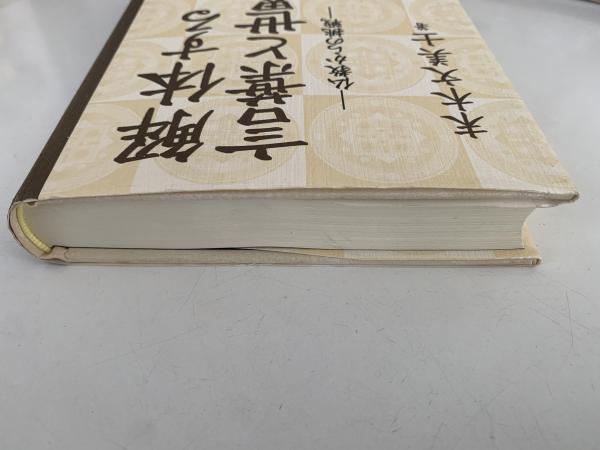 解体する
言葉と世界
―仏教からの挑戦―
末木文美士 著